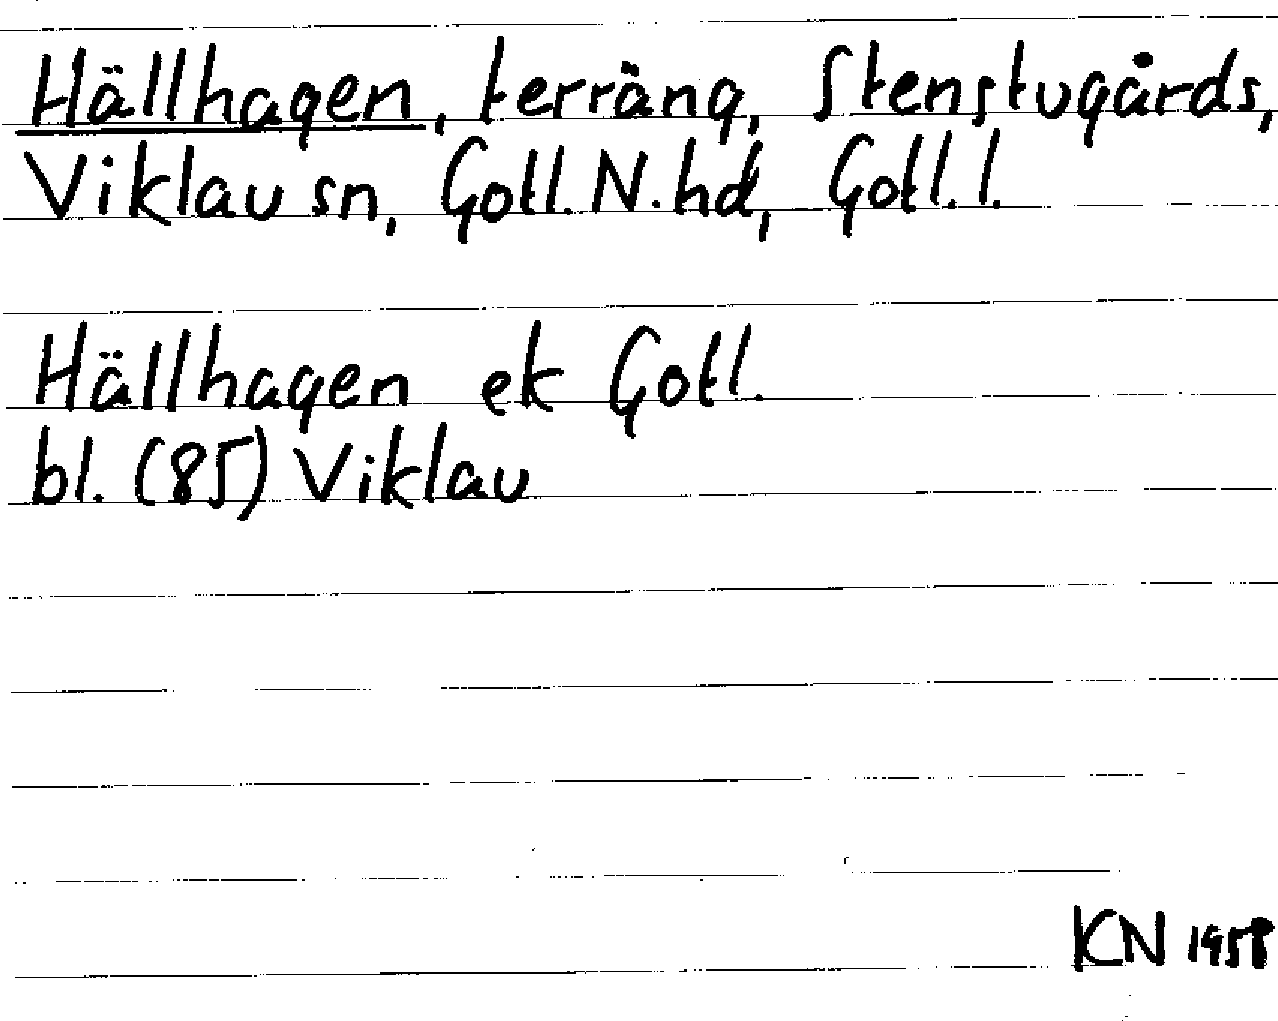 Hällhagen, terräng, Stenstugårds,
Viklau sn, Gotl. N. hd, Gotl. l.
Hällhagen ek Gotl.
bl. (85) Viklau
KN 1958